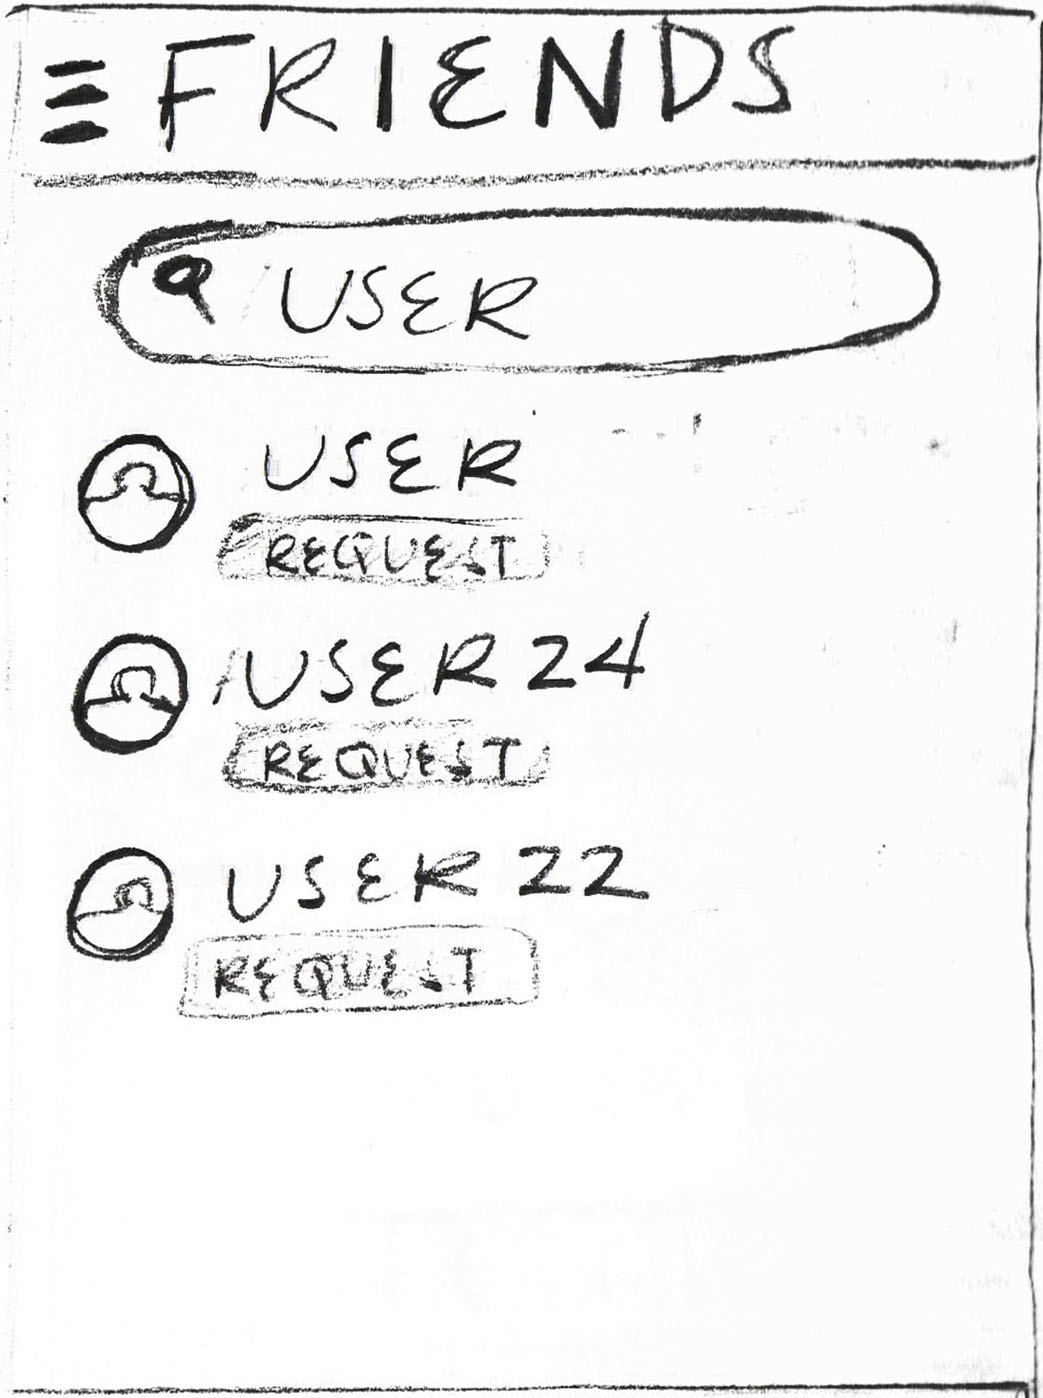 FRIENDS
USER
USER
REQUEST
USER 24
REQUEST
USER 22
REQUEST